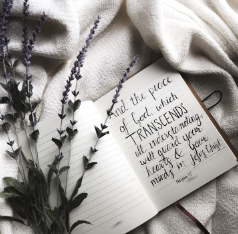 And the peace
of God, which
TRANSCENDS
all understanding,
will guard your
hearts & your
minds in Jesus Christ